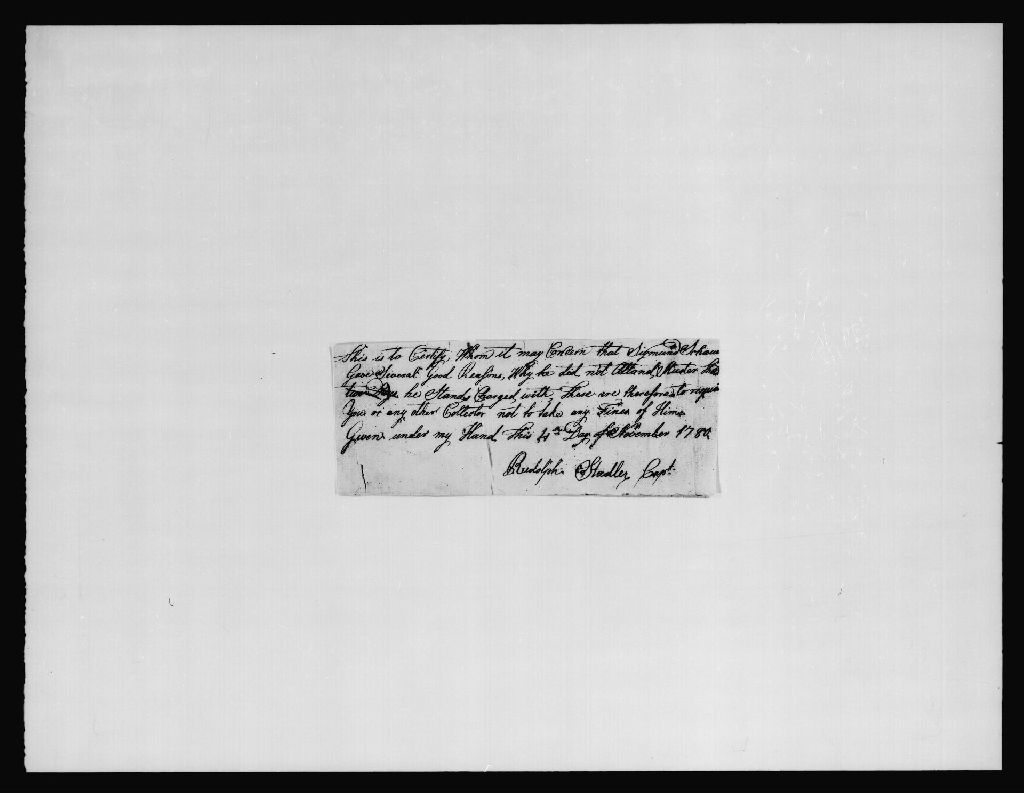 This is to Certify, Whom it may Concern that Sigmund
Gave Several Good Reasons, Why he did not Attend Muster the
two Days he Stands Charged with. These are therefore to require
You or any other Collector not to take any Fines of Him
Given under my Hand This 4th Day of November 1780
Rudolph Stadler Capt.